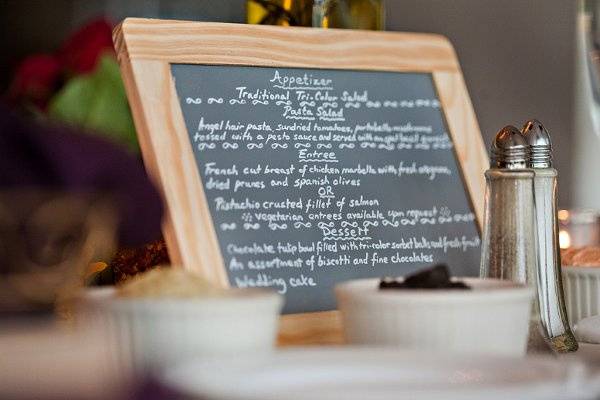 Appetizer
Traditional Tri-Color Salad
Pasta Salad
Angel hair pasta, sundried tomatoes, portobello mushrooms
tossed with a pesto sauce and served with
Entree
French cut breast of chicken marbella with fresh oregano,
dried prunes and spanish olives
OR
Pistachio crusted fillet of salmon
vegetarian entrees available upon request
Dessert
Chocolate tulip bowl filled with tri-color sorbet balls and fresh fruit
An assortment of biscotti and fine chocolates
Wedding cake